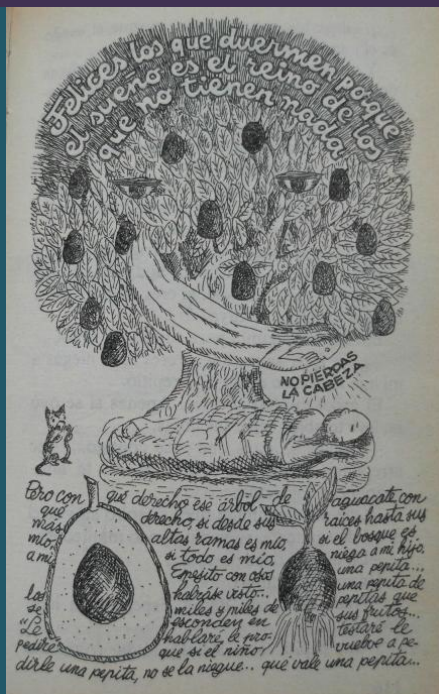 Felices los que duermen porque
el sueño es el reino de los
que no tienen nada
NO PIERDAS
LA CABEZA
Pero con qué derecho ese árbol de aguacate con
qué derecho, si desde sus raíces hasta sus
más altas ramas es mío, si el bosque es
mío, si todo es mío, niega a mi hijo,
a mi Espesito con ojos una pepita...
habráse visto... una pepita de
las miles y miles de pepitas que
se esconden en sus frutos...
"Le hablaré, le protestaré le
pediré que si el niño vuelve a pe-
dirle una pepita, no se la niegue... qué vale una pepita...